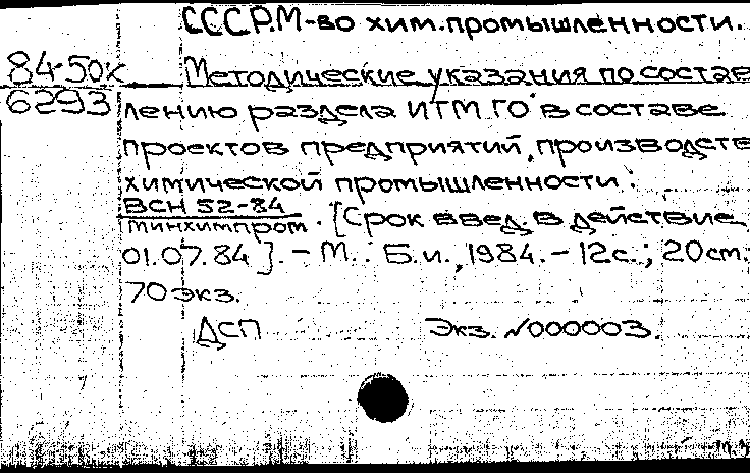 СССР. М-во хим. промышленности.
84-50к Методические указания по состав
6293 лению раздела ИТМ ГО в составе
проектов предприятий, производств
химической промышленности.
ВСН 52-84
Минхимпром. [Срок введ. в действие
01.07.84]. - М.: Б.и., 1984. - 12с.; 20см.
70экз.
ДСП Экз. №000003.